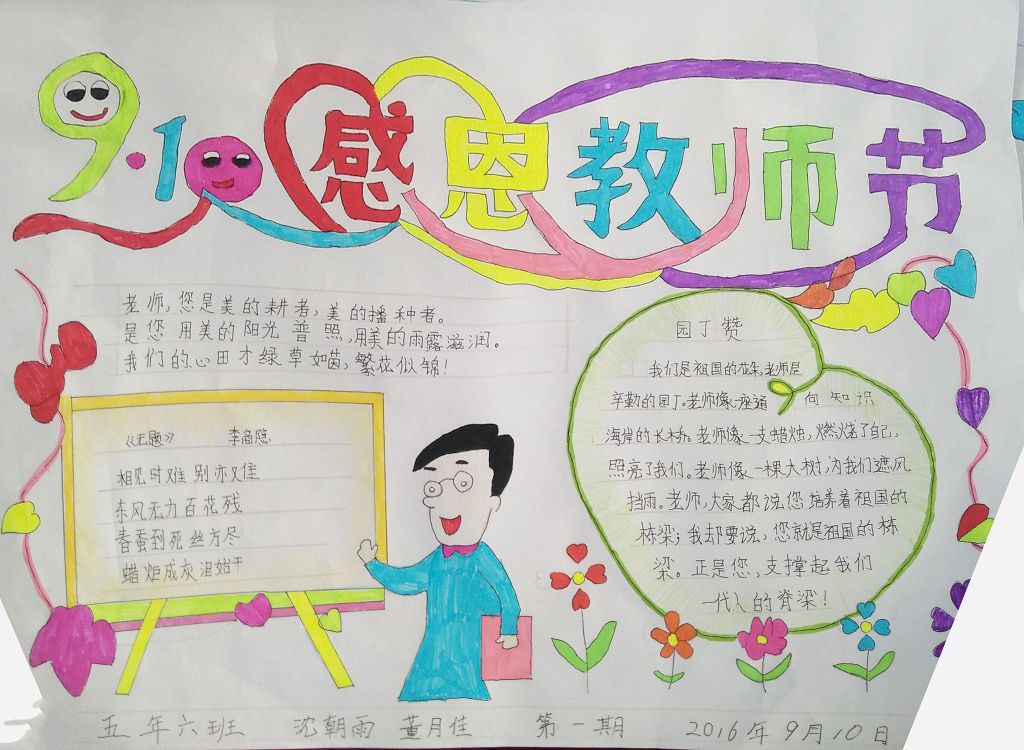 9·10感恩教师节
老师,您是美的耕者,美的播种者。
是您用美的阳光普照,用美的雨露滋润。
我们的心田才绿草如茵,繁花似锦!
《无题》 李商隐
相见时难别亦难
东风无力百花残
春蚕到死丝方尽
蜡炬成灰泪始干
园丁赞
我们是祖国的花朵,老师是
辛勤的园丁。老师像一座通向知识
海岸的长桥。老师像一支蜡烛,燃烧了自己,
照亮了我们。老师像一棵大树,为我们遮风
挡雨。老师,大家都说您培养着祖国的
栋梁;我却要说,您就是祖国的栋
梁。正是您,支撑起我们
一代人的脊梁!
五年六班 沈朝雨 董月佳 第一期 2016年9月10日